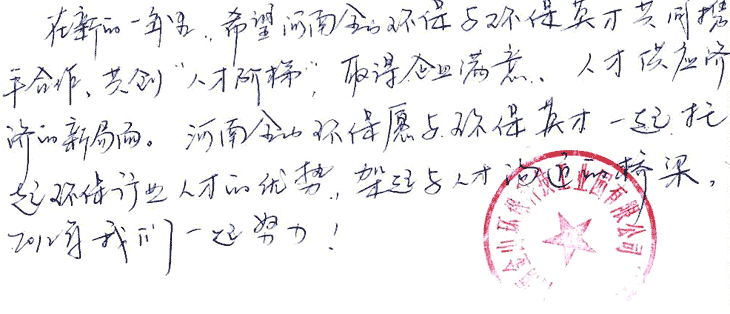 在新的一年里,希望河南金山环保与环保英才共同携
手合作、共创"人才阶梯",取得企业满意、人才供应济
济的新局面。河南金山环保愿与环保英才一起托
起环保行业人才的优势,架起与人才沟通的桥梁,
2012年我们一起努力!
金山环 业 有限公司